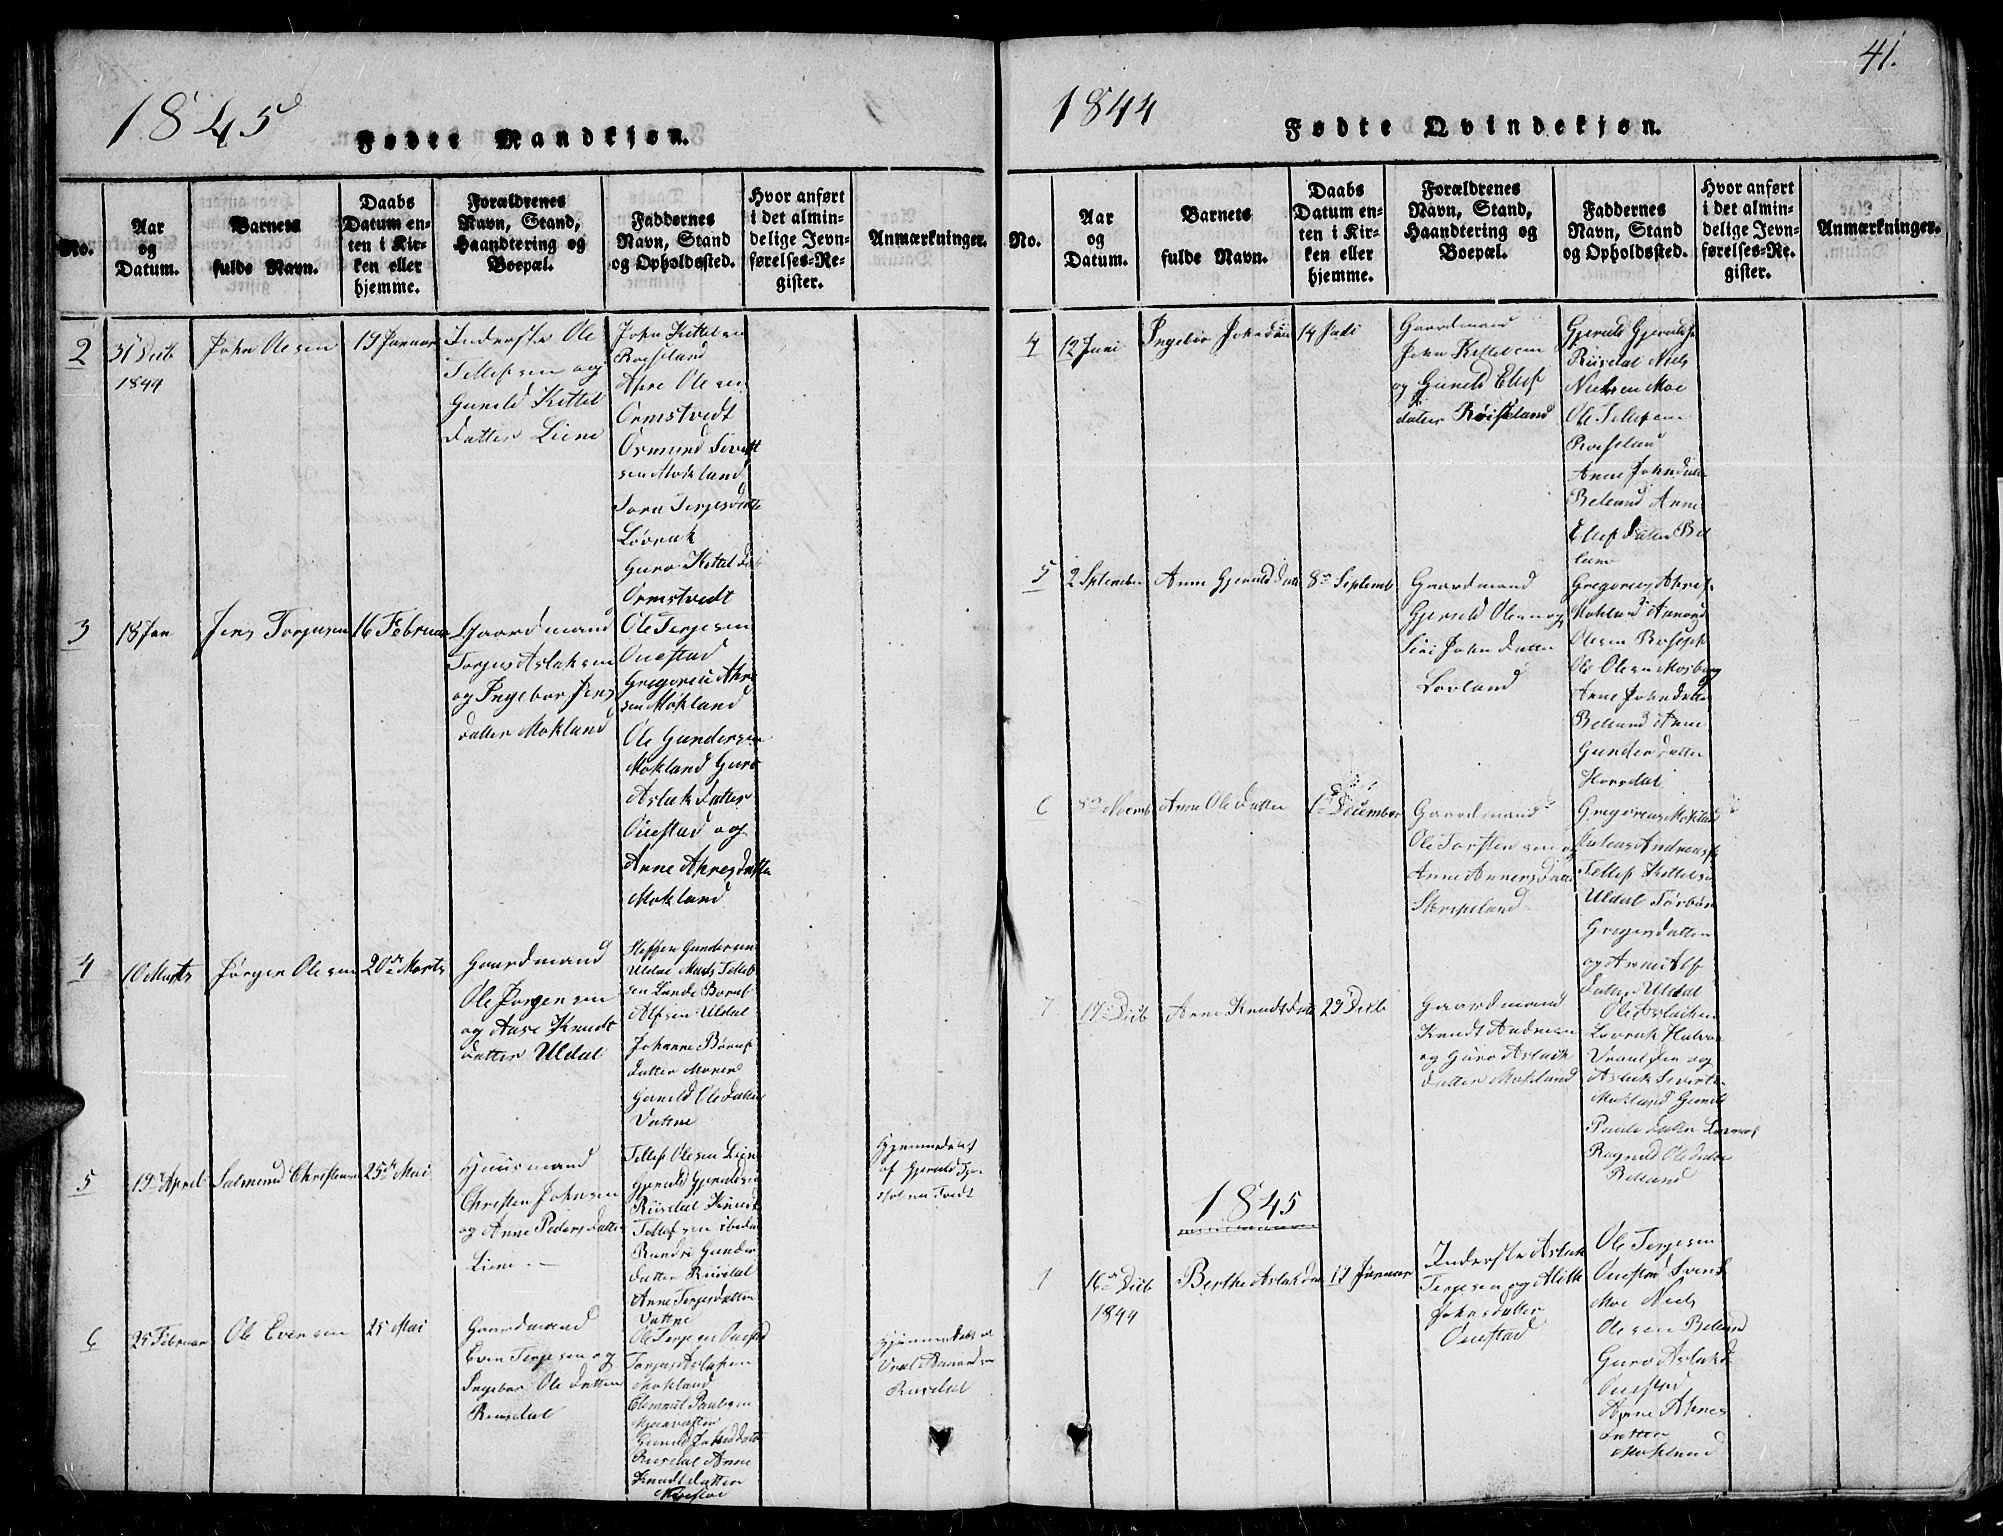 1845
Fødte Mandkjøn.
No.
Aar
og
Datum.
Barnets
fulde Navn.
Daabs
Datum en-
ten i Kir-
ken eller
hjemme.
Forældrenes
Navn, Stand,
Haandtering og
Boepæl.
Faddernes
Navn, Stand
og Opholdssted.
Hvor anført
i det almin-
delige Jevn-
førelses-Re-
gister.
Anmærkninger.
2
31 Decb
1844
John Olesen
19 Januar
Inderste Ole
Tellefsen og
Gunild Kittel
datter Liene
John Kittelsen
Roiseland
Apre Olesen
Ormstvedt
Osmund Sivert
sen Mokland
Torn Terjesdatte
Lövrak
Guro Kittel dat
Ormstvedt
3
18 Jan
Jens Torjusen
16 Februar
Gaardmand
Torjus Aslaksen
og Ingebor Jens
datter Mokland
Ole Terjesen
Onestad
Gregorius Akre
sen Mokland
Ole Gundersen
Mokland Guro
Aslakdatter
Onestad og
Anne Akresdatter
Mokland
4
10 Marts
Jørgen Olesen
20de Marts
Gaardmand
Ole Jørgensen
og Aase Knudt
datter Uldal
Steffen Gundersen
Uldal Mads Tellef
sen Lunde Borul
Alfsen Uldal
Johanne Børuf
datter Moner
Gunild Oledatter
Vattne
5
19 April
Salmund Christensen
25de Mai
Huusmand
Christen Johnsen
og Anne Pedersdatter
Liene
Tellef Olesen Lien
Gjeruld Gjeruldsen
Riisdal Knudt
Tellefsen ibedn
Randi Gunder
datter Riisdal
Anne Terjesdatter
Vattne
Hjemmedøbt
af Gjeruld
Tvedt
6
25 Februar
Ole Evensen
25 Mai
Gaardmand
Even Terjesen og
Ingebor Oledatter
Riisdal
Ole Terjesen Onestad
Torjus Aslaksen
Mokland
Clemmet Paulsen
Gunild Johndatte
Risdal Anne
Knudtdatter
Hjemmedøbt af
Uval Aanardsen
Riisdal
41.
1844
Fødte Qvindekjøn.
No.
Aar
og
Datum.
Barnets
fulde Navn.
Daabs
Datum en-
ten i Kir-
ken eller
hjemme.
Forældrenes
Navn, Stand,
Haandtering og
Boepæl.
Faddernes
Navn, Stand
og Opholdssted.
Hvor anført
i det almin-
delige Jevn-
førelses-Re-
gister.
Anmærkninger.
4
12 Juni
Ingebor Johnsdat
14 Juli
Gaardmand
John Kittelsen
og Guneld Elef
datter Røiseland
Gjeruld Gjerulds
Riisdal Niels
Nielsen Moe
Ole Tellefsen
Roiseland
Anne Johndatter
Beland Anne
Elefdatter Bel
land
5
2 September
Anne Gjerulddatt
8de Septemb
Gaardmand
Gjeruld Olsen og
Siri John datter
Lovland
Gregorius Akres
Mokland Aanond
Olesen
Ole Olesen Mosberg
Anne Johndatter
Belland Anne
Gunderdatter
Horsdal
6
Novemb
Anne Oledatter
1 December
Gaardmand
Ole Torstensen og
Anne Annersdatte
Skrepeland
Gregorius Mokland
Andreas
Tellef Kittelsen
Uldal Torbor
Gregersdatter
og Anne Alf
datter Uldal
7
17 Decb
Anne Knudtdatt
29 Decb
Gaardmand
Knudt Andersen
og Guro Aslak
datter Mokland
Ole Aslaksen
Lovrak Halvor
og
Aslak Sivert
Mokland Gunild
Pauls datter Lovrak
Ragnild Oledatter
Belland
1845
1
16de Decb
1844
Berthe Aslakdat
17 Januar
Inderste Aslak
Terjesen og Alith
Johnsdatter
Onestad
Ole Terjesen
Onestad Svend
Moe Niels
Olesen Belland
Guro Aslakd
Onestad
Anne Akres
datter
Mokland